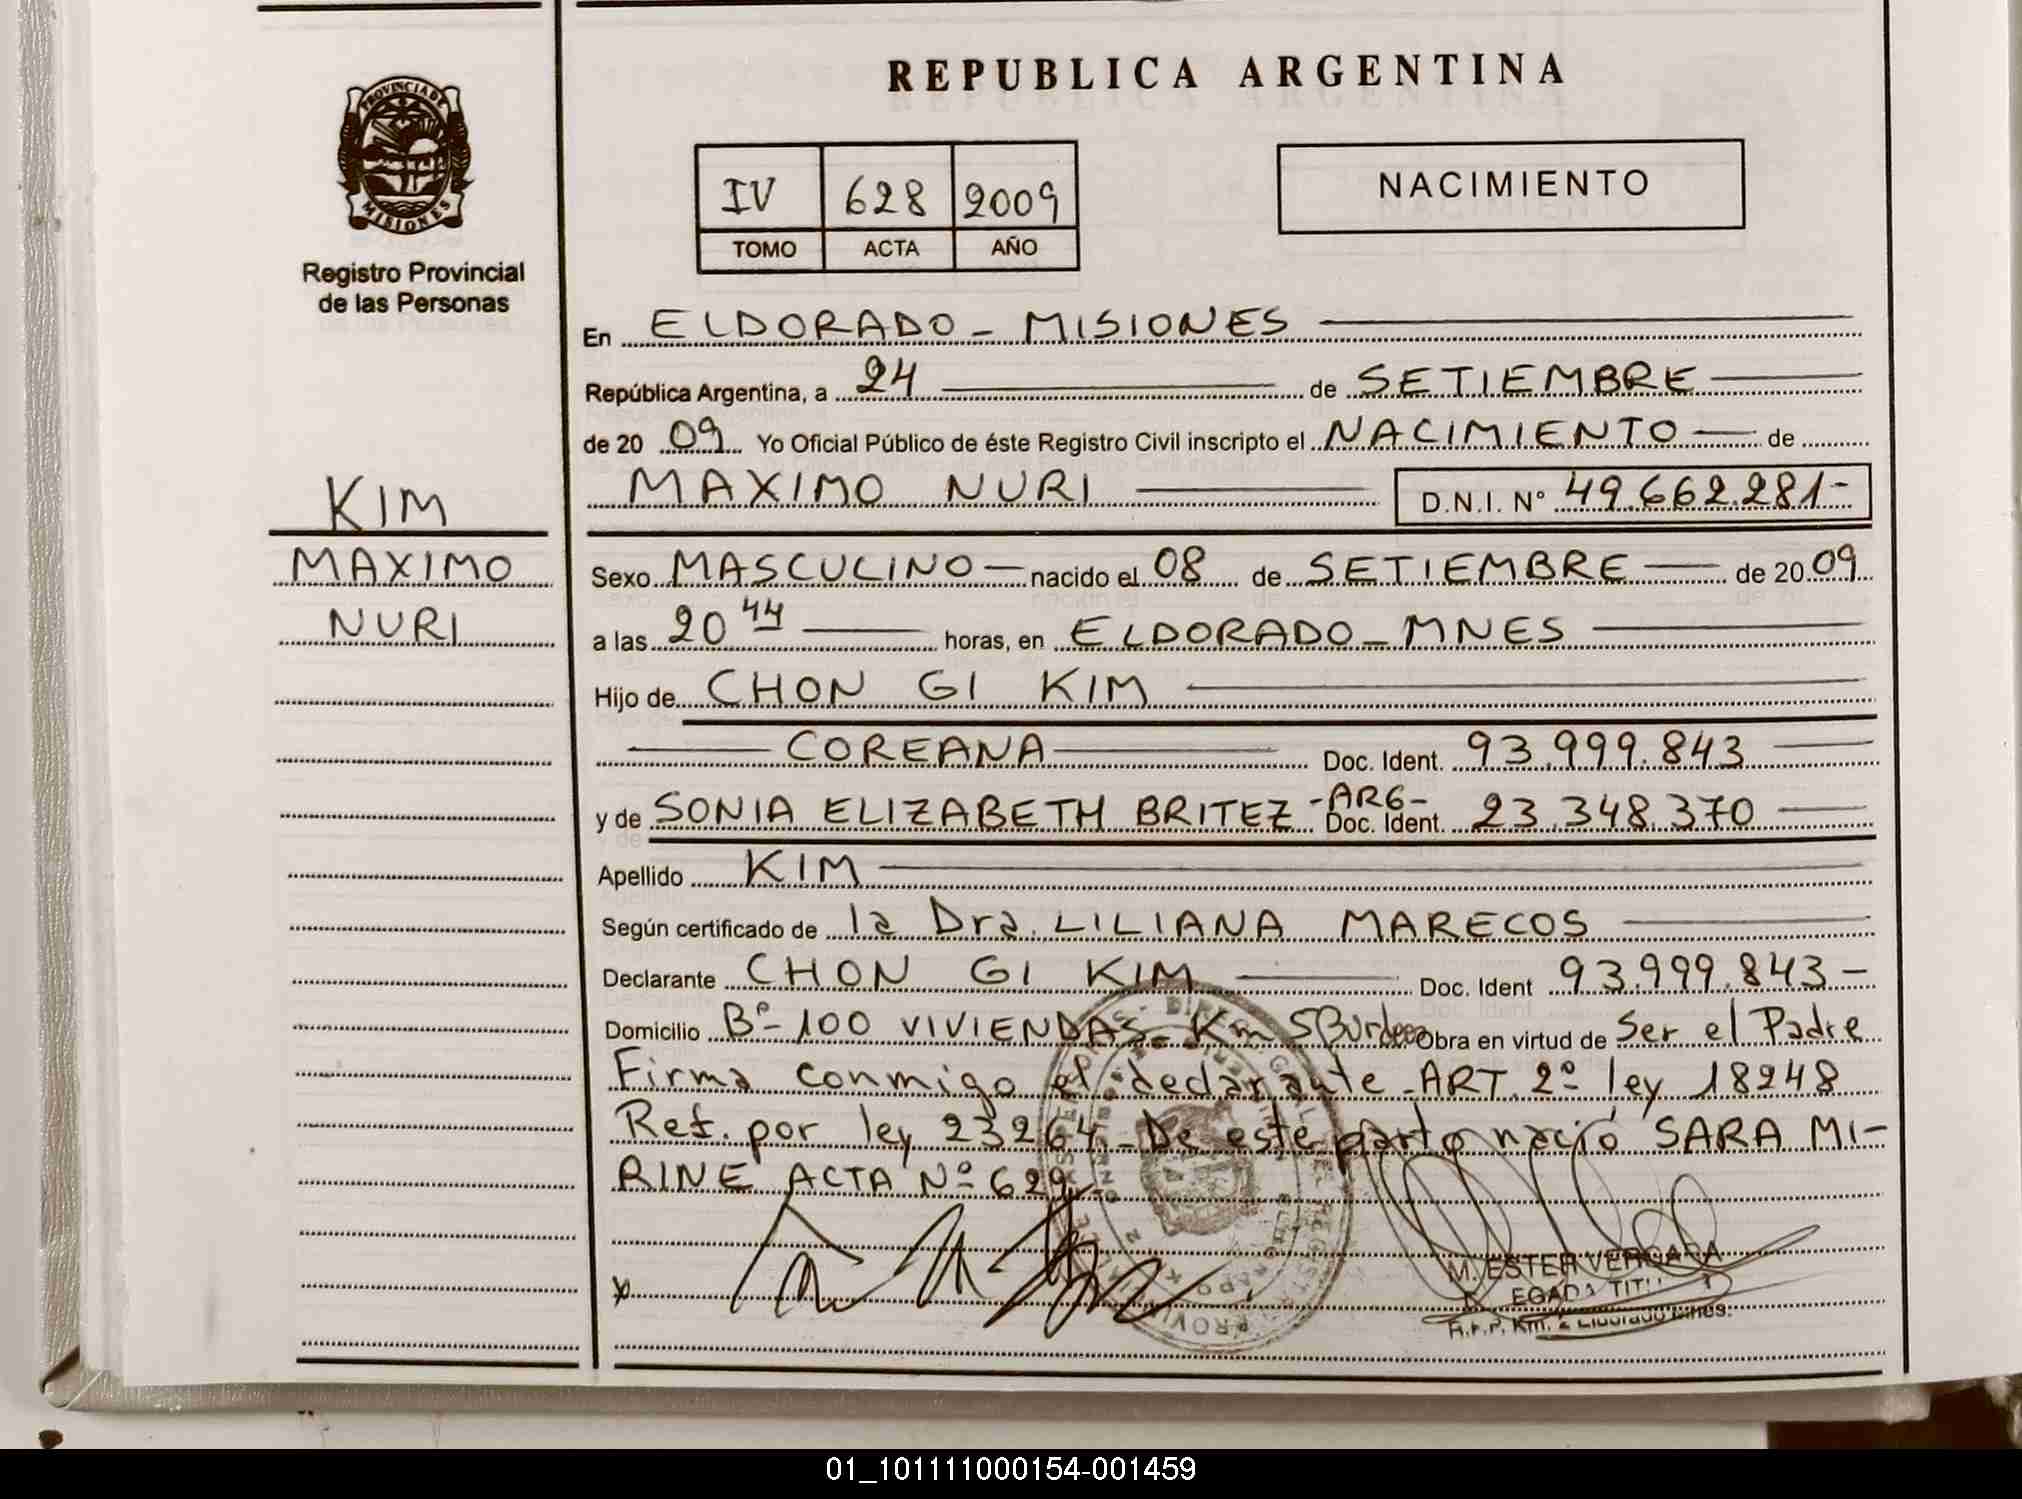 REPUBLICA ARGENTINA
PROVINCIA DE
MISIONES
Registro Provincial
de las Personas
IV 628 2009
TOMO ACTA AÑO
NACIMIENTO
En ELDORADO - MISIONES
República Argentina, a 24 de SETIEMBRE
de 20 09 Yo Oficial Público de éste Registro Civil inscripto el NACIMIENTO de
MAXIMO NURI D.N.I. Nº 49.662.281-
KIM
MAXIMO
NURI
Sexo MASCULINO nacido el 08 de SETIEMBRE de 20 09
a las 20 44 horas, en ELDORADO - MNES
Hijo de CHON GI KIM
COREANA Doc. Ident. 93.999.843
y de SONIA ELIZABETH BRITEZ - ARG - Doc. Ident. 23.348.370
Apellido KIM
Según certificado de la Dra. LILIANA MARECOS
Declarante CHON GI KIM Doc. Ident 93.999.843-
Domicilio Bº- 100 VIVIENDAS - Km 5 Obra en virtud de Ser el Padre
Firma conmigo el declarante - ART. 2º ley 18248
Ref. por ley 23264 - De este parto nació SARA MI-
RINE ACTA Nº 629
M. ESTER VERGARA
01_101111000154-001459